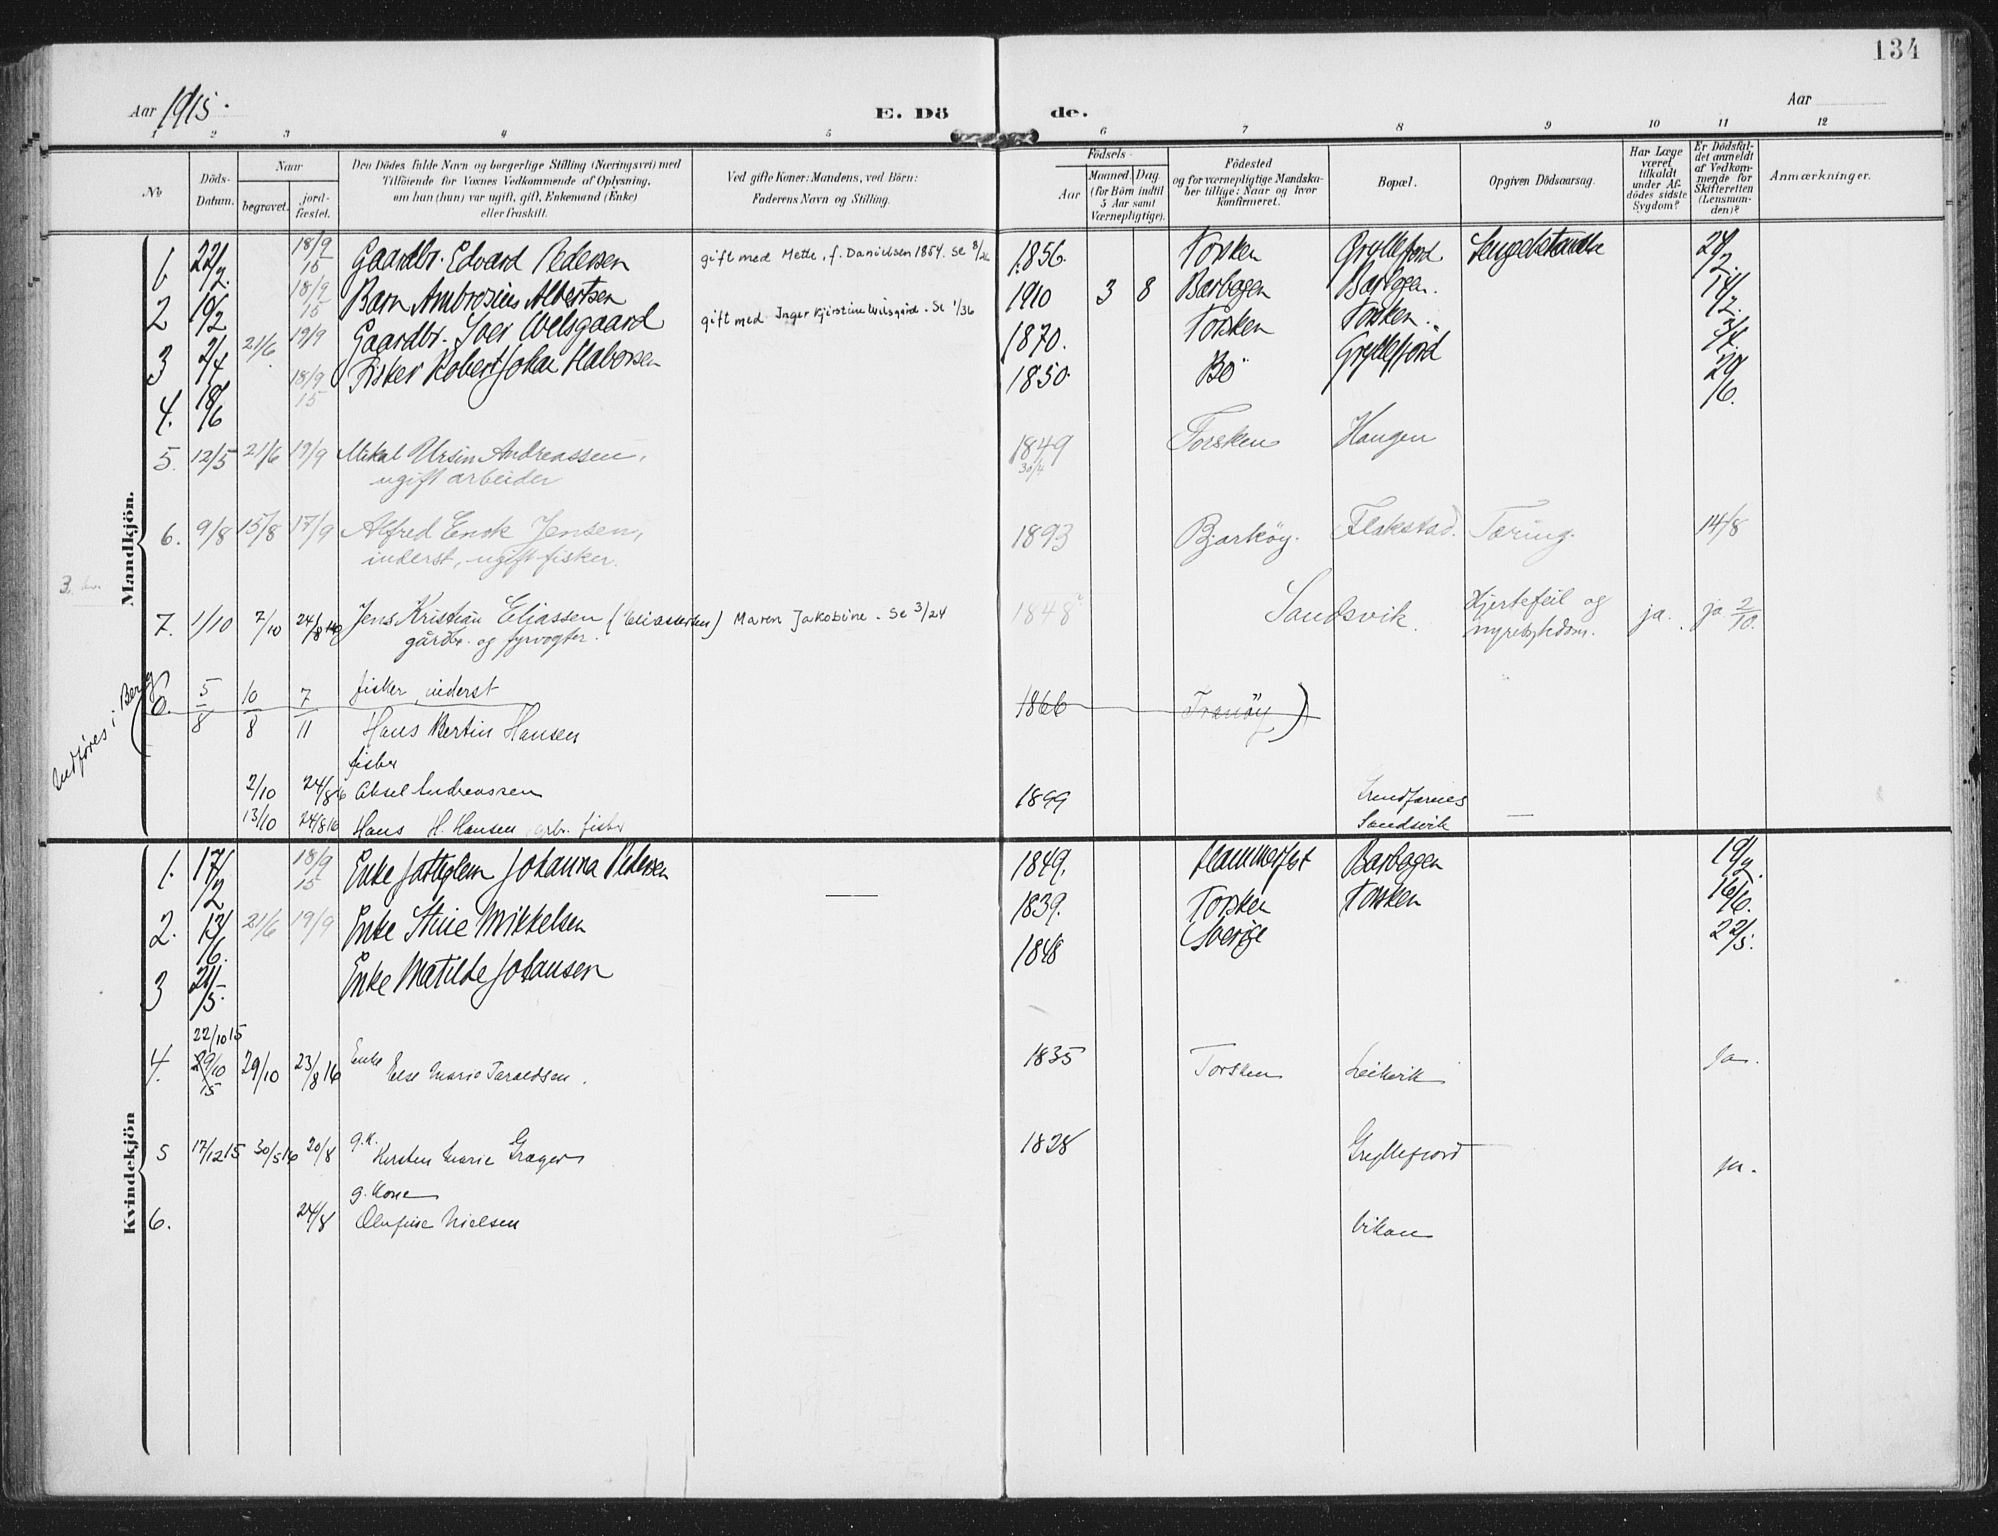 134
Aar 1915.
E. Dö de.
Aar
1 2 3 4 5 6 7 8 9 10 11 12
No
Döds-Datum.
Naar
begravet.
jord-fæstet.
Den Dödes fulde Navn og borgerlige Stilling (Næringsvei) med
Tilföiende for Voxnes Vedkommende af Oplysning,
om han (hun) var ugift, gift, Enkemand (Enke)
eller fraskilt.
Ved gifte Koner: Mandens, ved Börn:
Faderens Navn og Stilling.
Födsels-
Aar
Maaned. Dag.
(for Börn indtil
5 Aar samt
Værnepligtige).
Födested
og for værnepligtige Mandska-
ber tillige: Naar og hvor
konfirmeret.
Bopæl.
Opgiven Dödsaarsag.
Har Læge
været
tilkaldt
under Af-
dödes sidste
Sygdom?
Er Dödsfal-
det anmeldt
af Vedkom-
mende for
Skifteretten
(Lensman-
den)?
Anmærkninger.
Mandkjön.
22/2. 18/9 15 Gaardbr. Edvard Pedersen gift med Mette, f. Danielsen 1854. Se 8/26 1856. Torsken Gryllefjord 24/2.
2 19/2 18/9 15 Barn Ambrosius Albertsen 1910 3 8 Barbogen Barbogen. 14/2.
3 2/4 21/6 19/9 Gaardbr. Iver Welsgaard gift med Inger Kjerstine Wilsgård. Se 1/36 1870. Torsken Torsken.
4. 18/6 18/9 15 Fisker Robert Johan Haborsen 1850. Bö Gryllefjord 29/6.
5. 12/5 21/6 19/9 Mikal Ursin Andreassen, 1849 Torsken Haugen
ugift arbeider 30/4
6. 9/8 15/8 17/9 Alfred Enok Jensen, 1893 Bjarköy. Flakstad. Tæring. 14/8
inderst, ugift fisker.
7. 1/10 2/10 24/8 Jens Kristian Eliassen Maren Jakobine. Se 3/24 1848 Sandsvik. Hjertefeil og ja. ja 2/10.
gårdbr. og fyrvogter. nyresykdom.
Indføres i Berg
5/8 10/8 7/11 fisker, inderst 1866 Tranöy)
Hans Bertin Hansen
fisker
2/10 24/8 16 Aksel Andreassen 1899
13/10 24/8 16 Hans H. Hansen fisker Sandsvik
Kvindekjön
1. 17/2 18/9 15 Enke Johanna Pedersen 1849. Hammerfest Barbogen 19/2.
2. 13/6. 21/6 19/9 Enke Stine Mikkelsen 1839. Torsken Torsken 16/6.
3 21/5. Enke Matilde Johansen 1848 Sverige 22/5.
22/10 15
4. 29/10 15 29/10 23/8 16 Enke Else Marie Taraldsen. 1835 Torsken Leikvik Ja.
5 17/12 15 30/5 16 20/8 g.k. Kirsten Marie Græger 1828 Gryllefjord ja.
g. Kone
6. 24/8 Olufine Nielsen Vikan